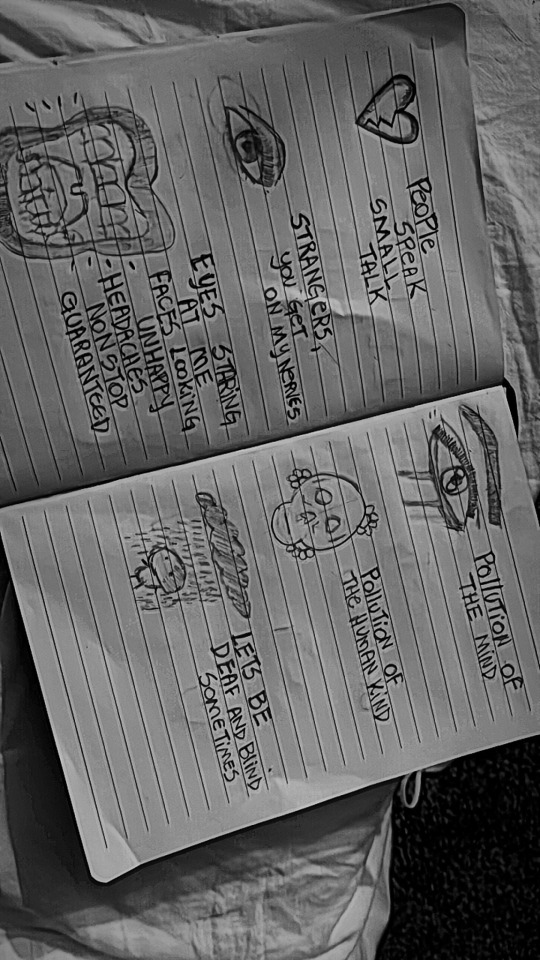 PEOPLE
SPEAK
SMALL
TALK
STRANGERS,
YOU GET
ON MY NERVES
EYES STARING
AT ME
FACES LOOKING
UNHAPPY
HEADACHES
NON STOP
GUARANTEED
POLLUTION OF
THE MIND
POLLUTION OF
THE HUMAN KIND
LETS BE
DEAF AND BLIND
SOMETIMES